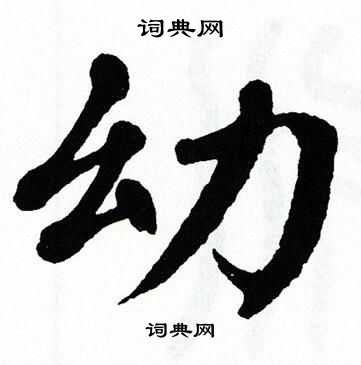 词典网
幼
词典网